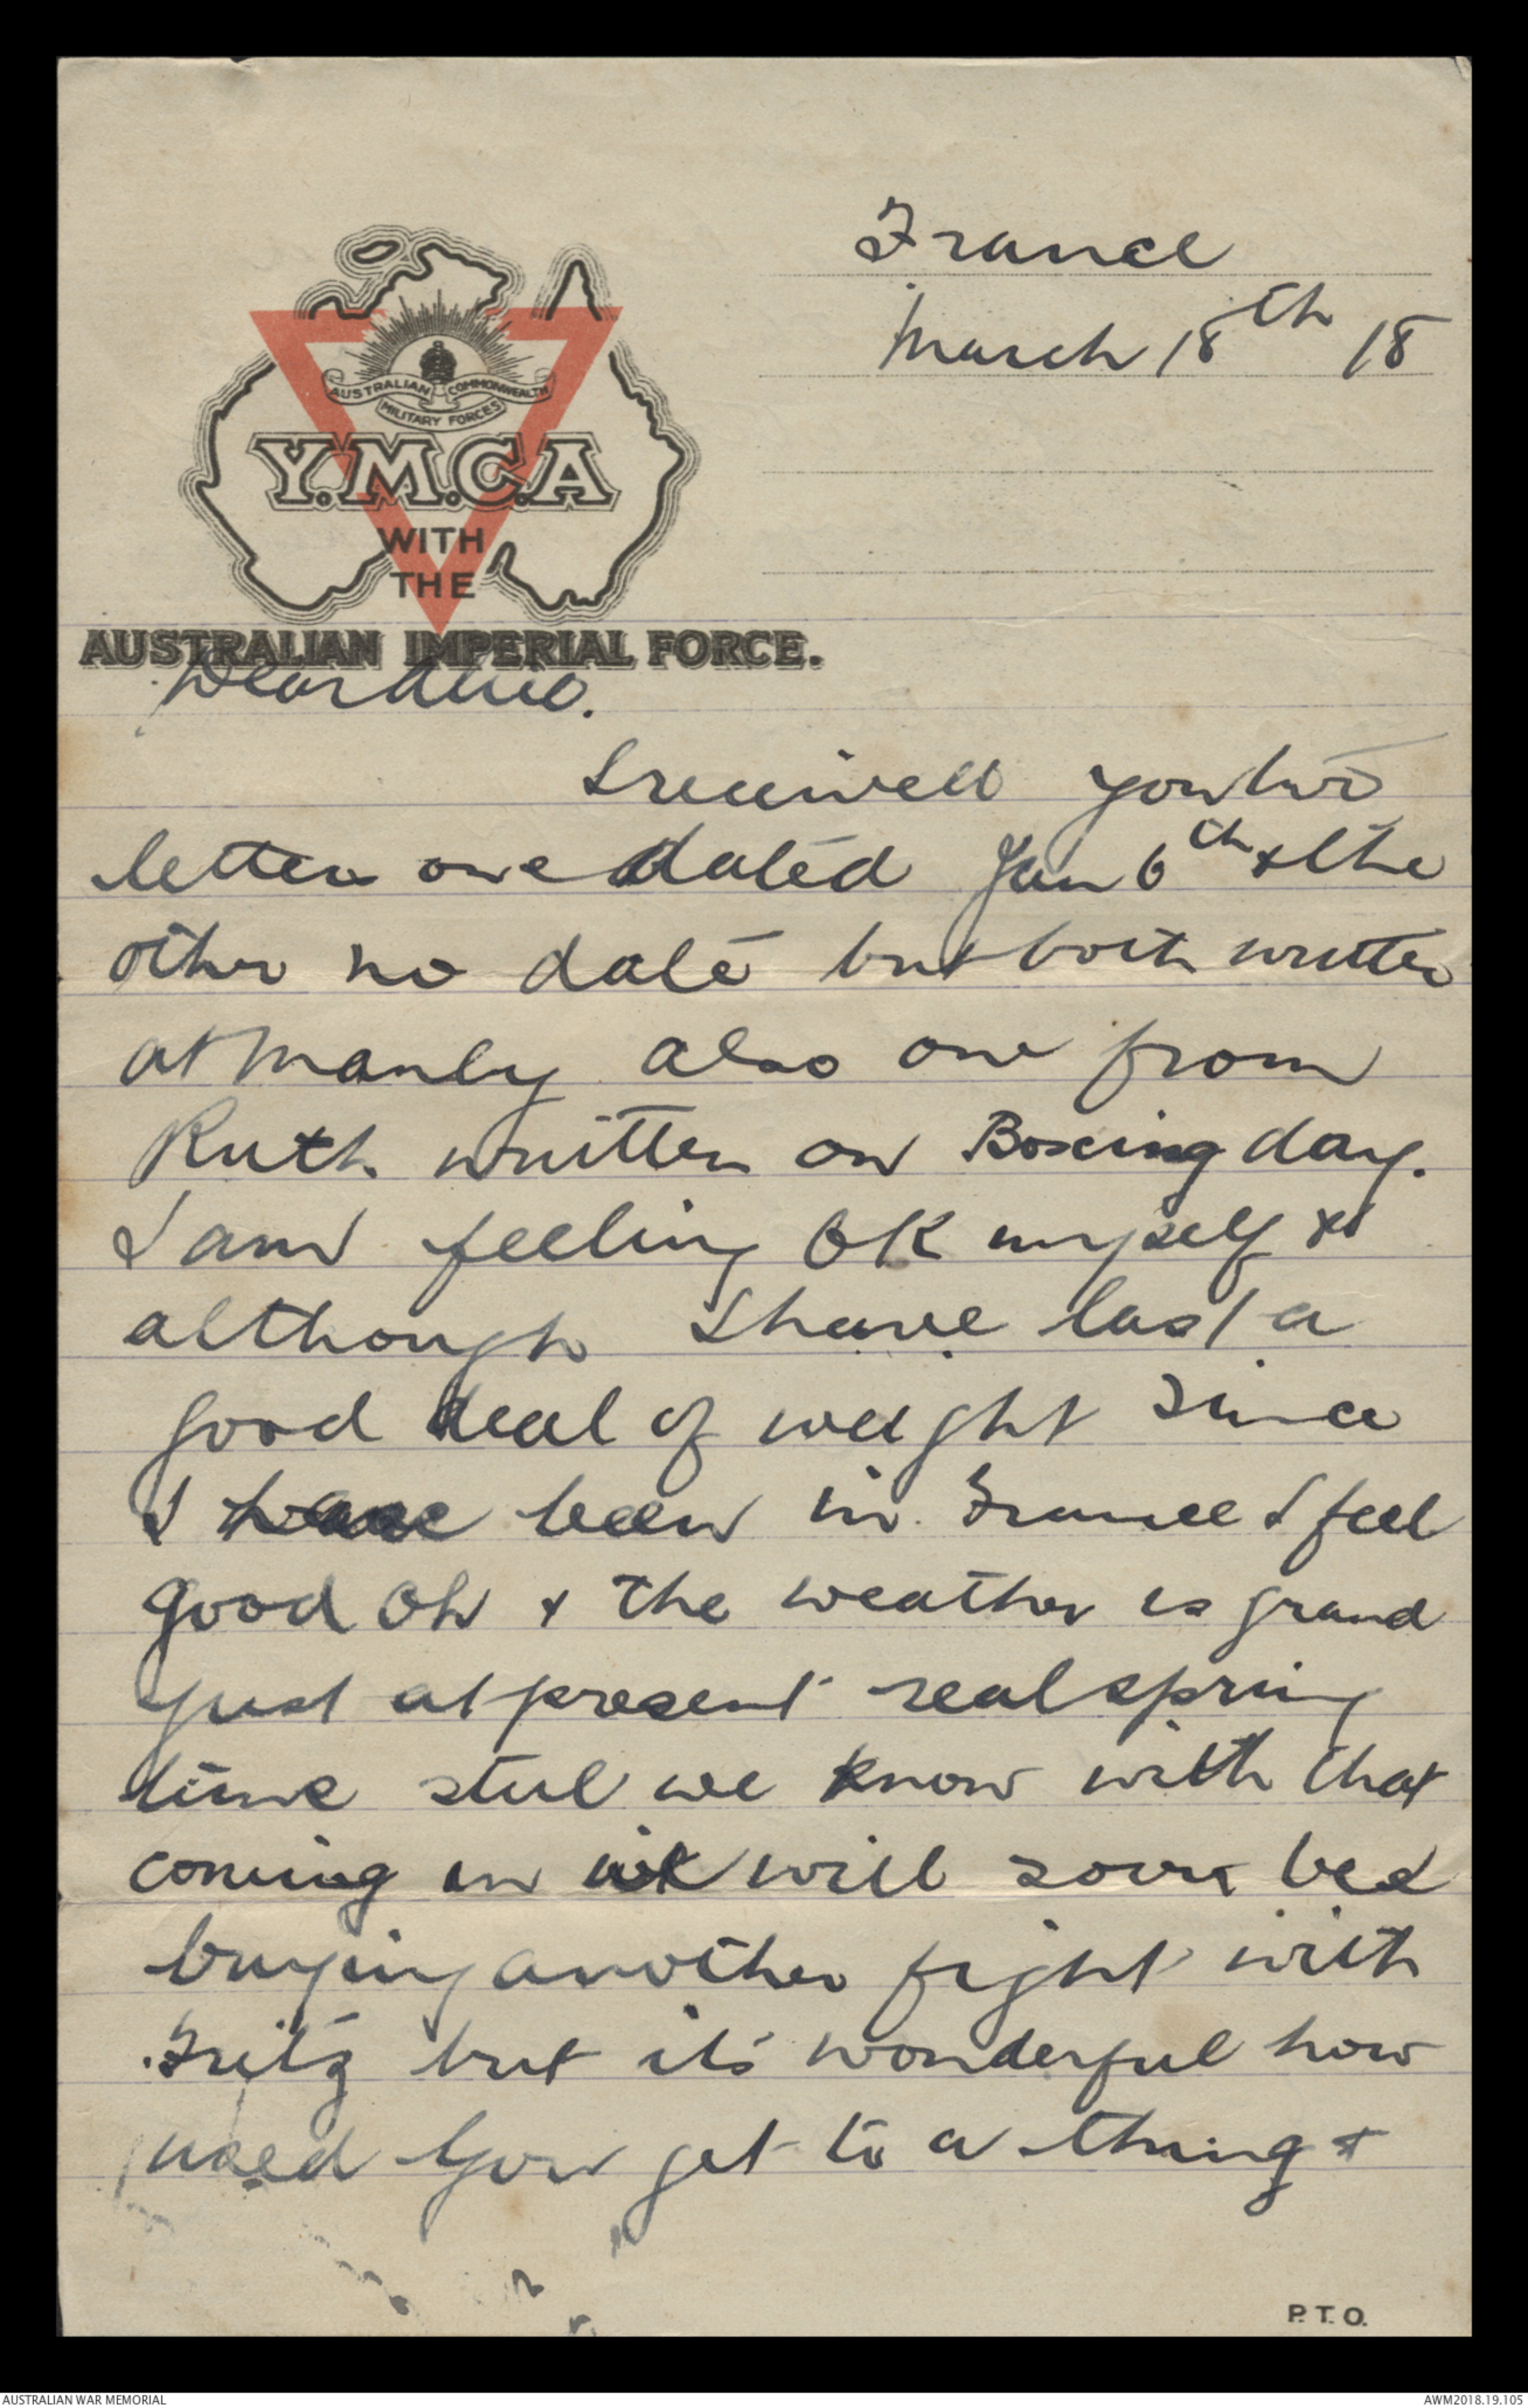 France
March 18th 18
AUSTRALIAN COMMONWEALTH
MILITARY FORCES
Y.M.C.A
WITH
THE
AUSTRALIAN IMPERIAL FORCE.
Dear
I received your two
letters one dated Jan 6th & the
other no date but both written
at Manly also one from
Ruth written on Boxing day.
I am feeling OK myself &
although I have lost a
good deal of weight since
I have been in France I feel
good oh & the weather is grand
just at present real spring
time still we know with that
coming on will soon be
buying another fight with
Fritz but its wonderful how
used you get to a thing &
P.T.O.
AUSTRALIAN WAR MEMORIAL
AWM2018.19.105